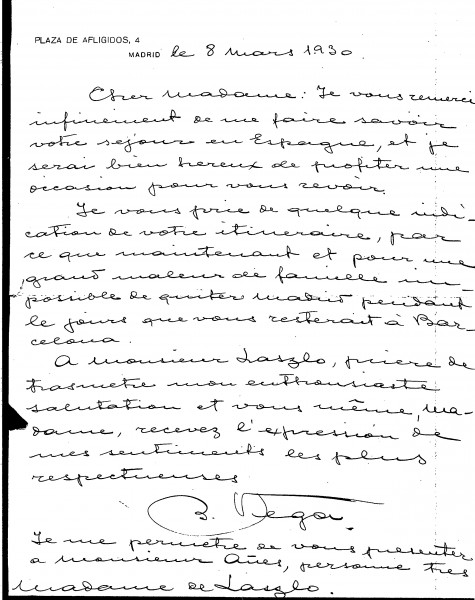 PLAZA DE AFLIGIDOS, 4
MADRID le 8 mars 1930
Cher Madame: Je vous remerci
infinement de me faire savoir
votre sejour en Espagne, et je
serai bien hereux de profiter une
occasion pour vous revoir.
Je vous prie de quelque indi-
cation de votre itineraire, par
ce que maintenant et pour une
grand maleur de famille im-
posible de quiter Madrid pendant
le jours que vous resterait à Bar-
celona.
A Monsieur Laszlo, priere de
trasmetre mon enthousiaste
salutation et vous même, Ma-
dame, recevez l'expression de
mes sentiments les plus
respectueuses
B. Vega.
Je me permetre de vous presenter
a Monsieur Añes, personne tres
Madame de Laszlo.